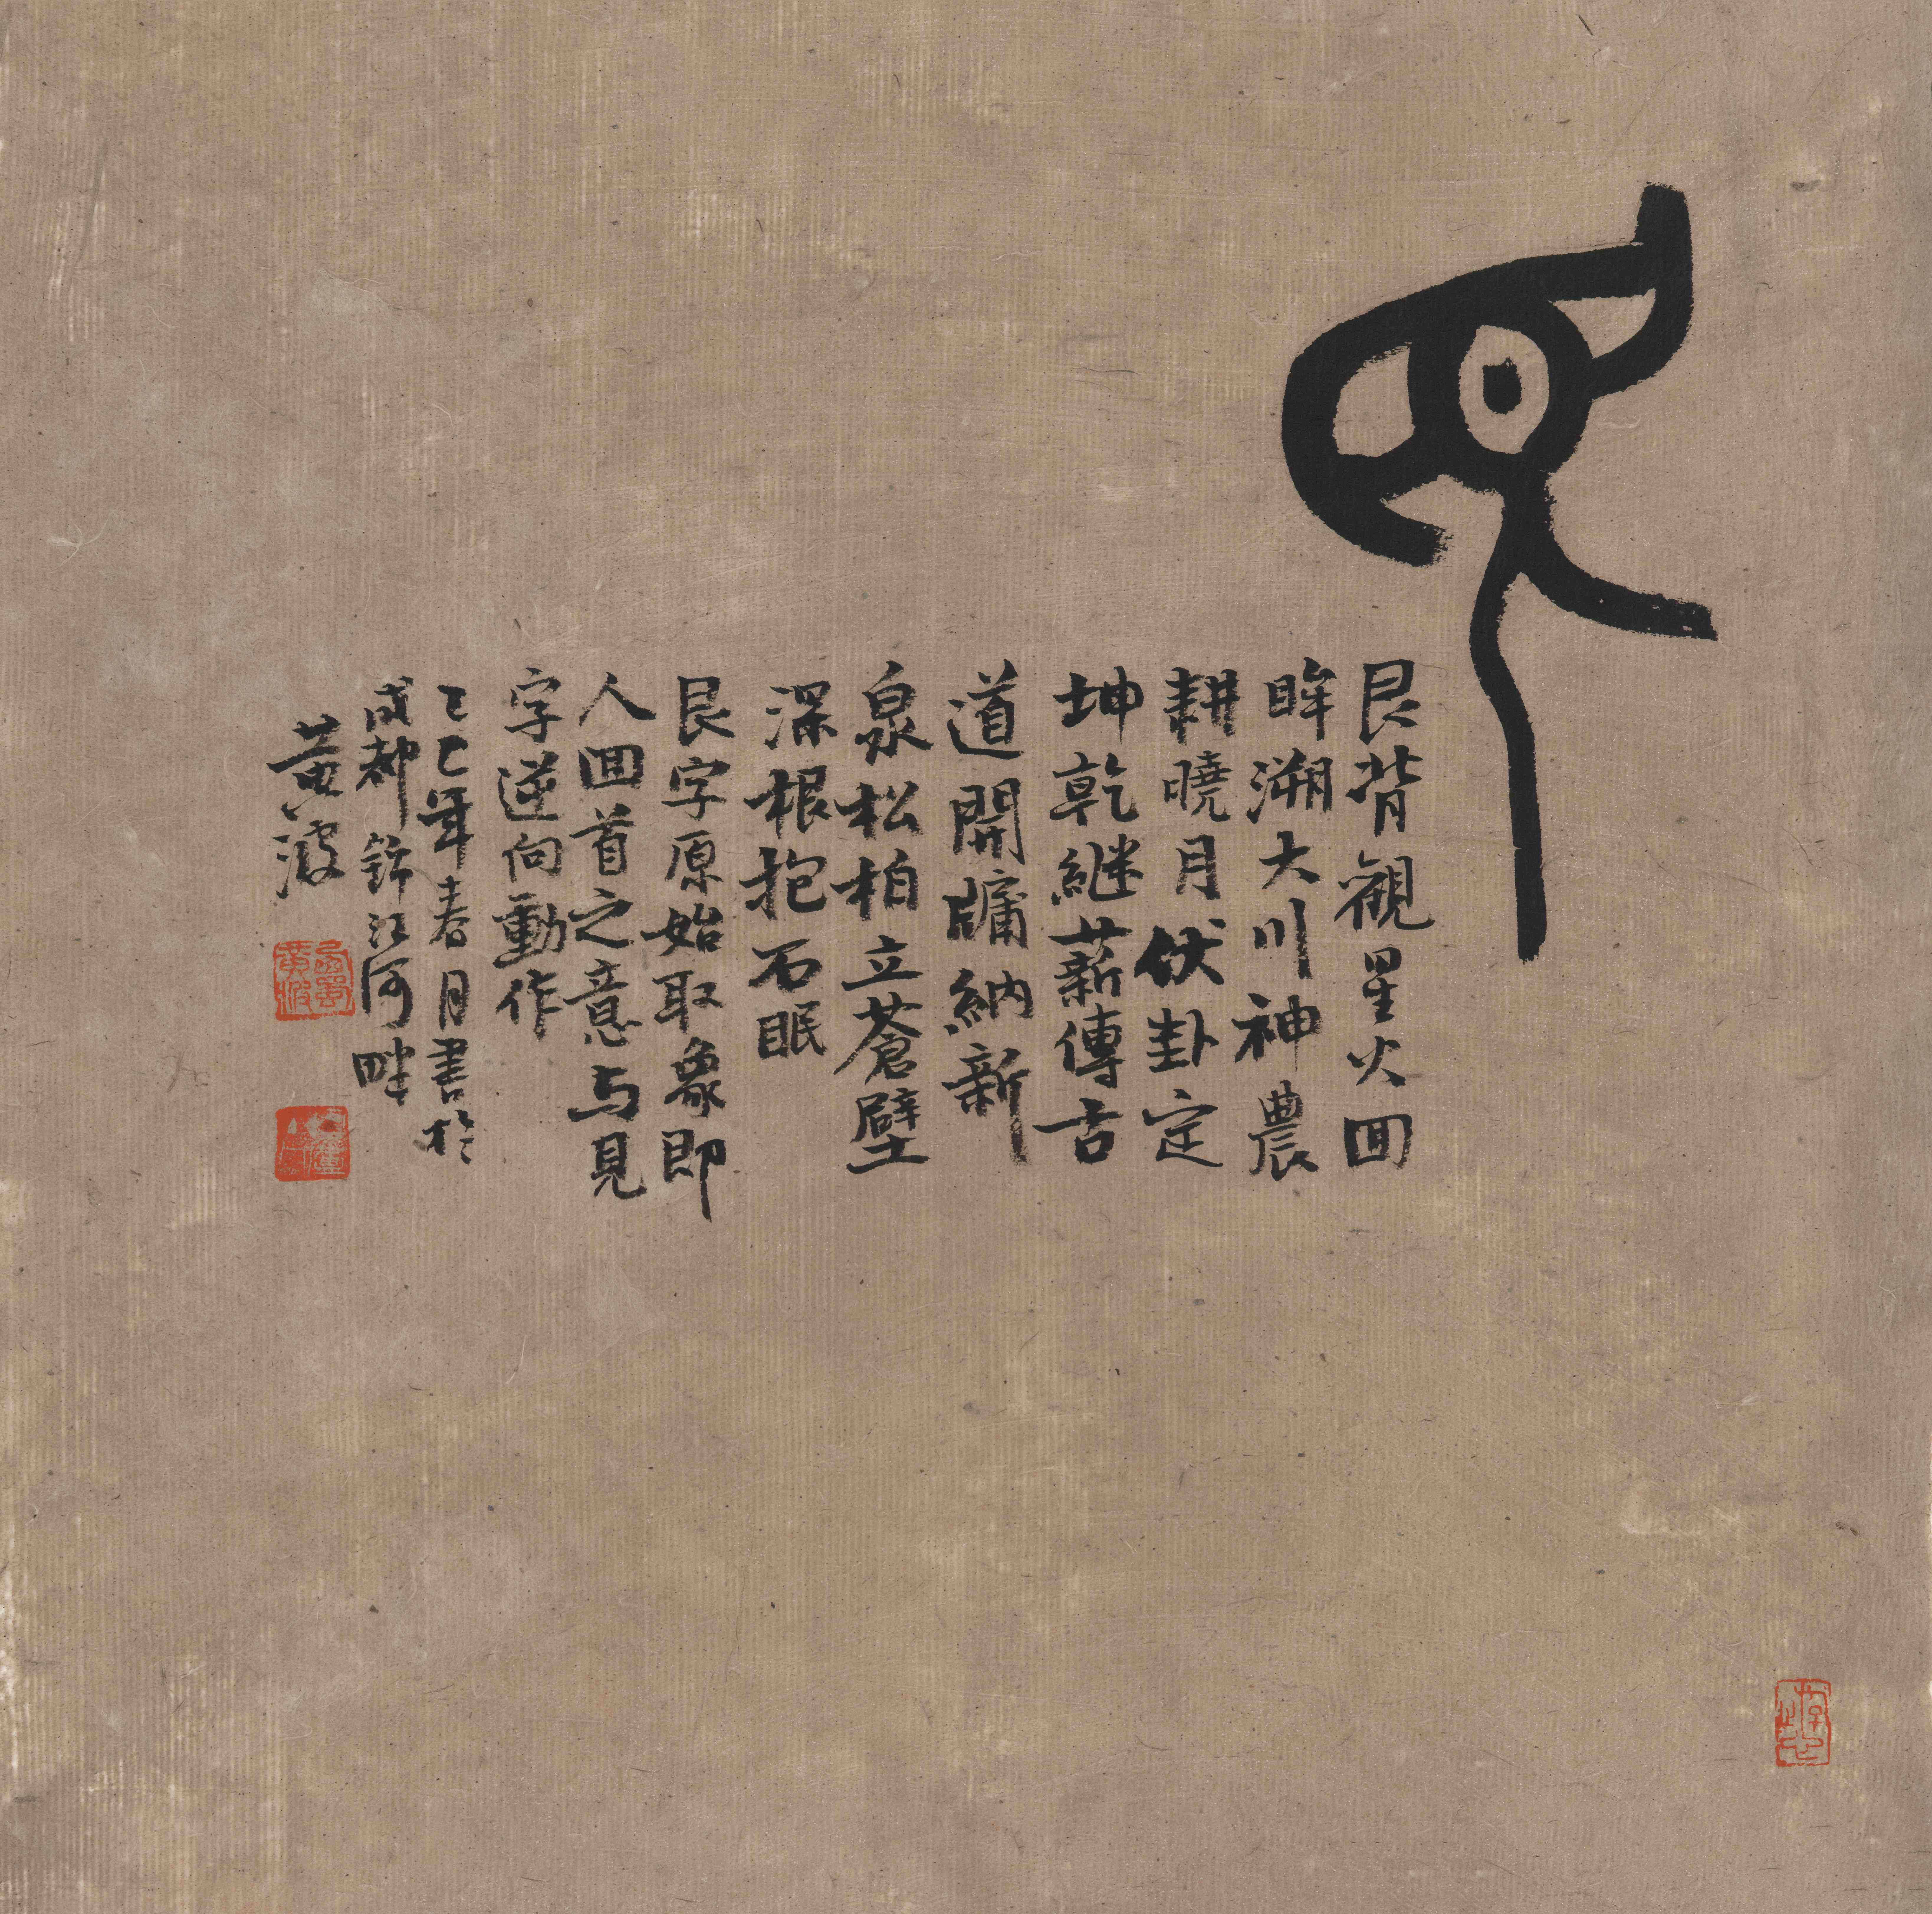 艮
艮背觀星火回
眸溯大川神農
耕曉月伏卦定
坤乾継薪傳古
道開牖納新
泉松柏立蒼壁
深根抱石眠
艮字原始取象即
人回首之意与見
字逆向動作
乙巳年春月書於
成都錦江河畔
黄波